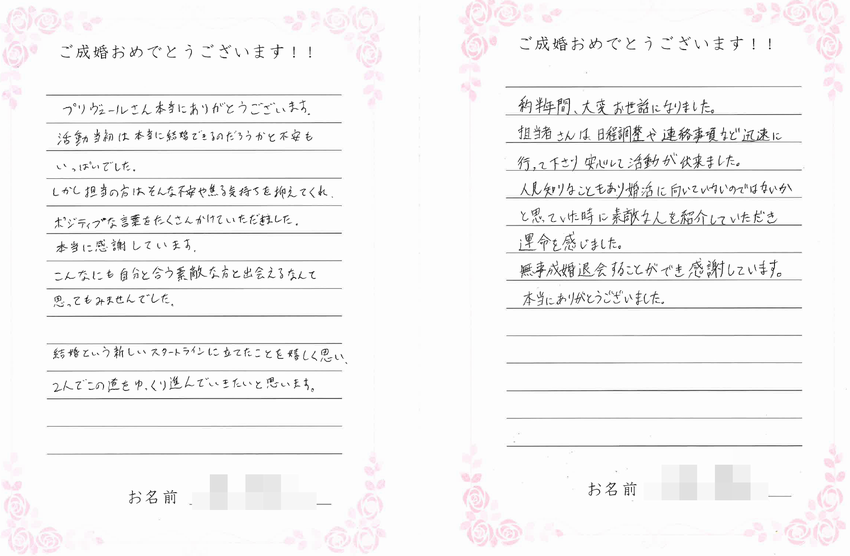 ご成婚おめでとうございます！！
プリヴェールさん本当にありがとうございます。
活動当初は本当に結婚できるのだろうかと不安も
いっぱいでした。
しかし担当の方はそんな不安や焦る気持ちを抑えてくれ、
ポジティブな言葉をたくさんかけていただきました。
本当に感謝しています。
こんなにも自分と合う素敵な方と出会えるなんて
思ってもみませんでした。
結婚という新しいスタートラインに立てたことを嬉しく思い、
2人でこの道をゆっくり進んでいきたいと思います。
お名前
ご成婚おめでとうございます！！
約半年間、大変お世話になりました。
担当者さんは日程調整や連絡事項など迅速に
行って下さり安心して活動が出来ました。
人見知りなこともあり婚活に向いていないのではないか
と思っていた時に素敵な人を紹介していただき
運命を感じました。
無事成婚退会することができ感謝しています。
本当にありがとうございました。
お名前